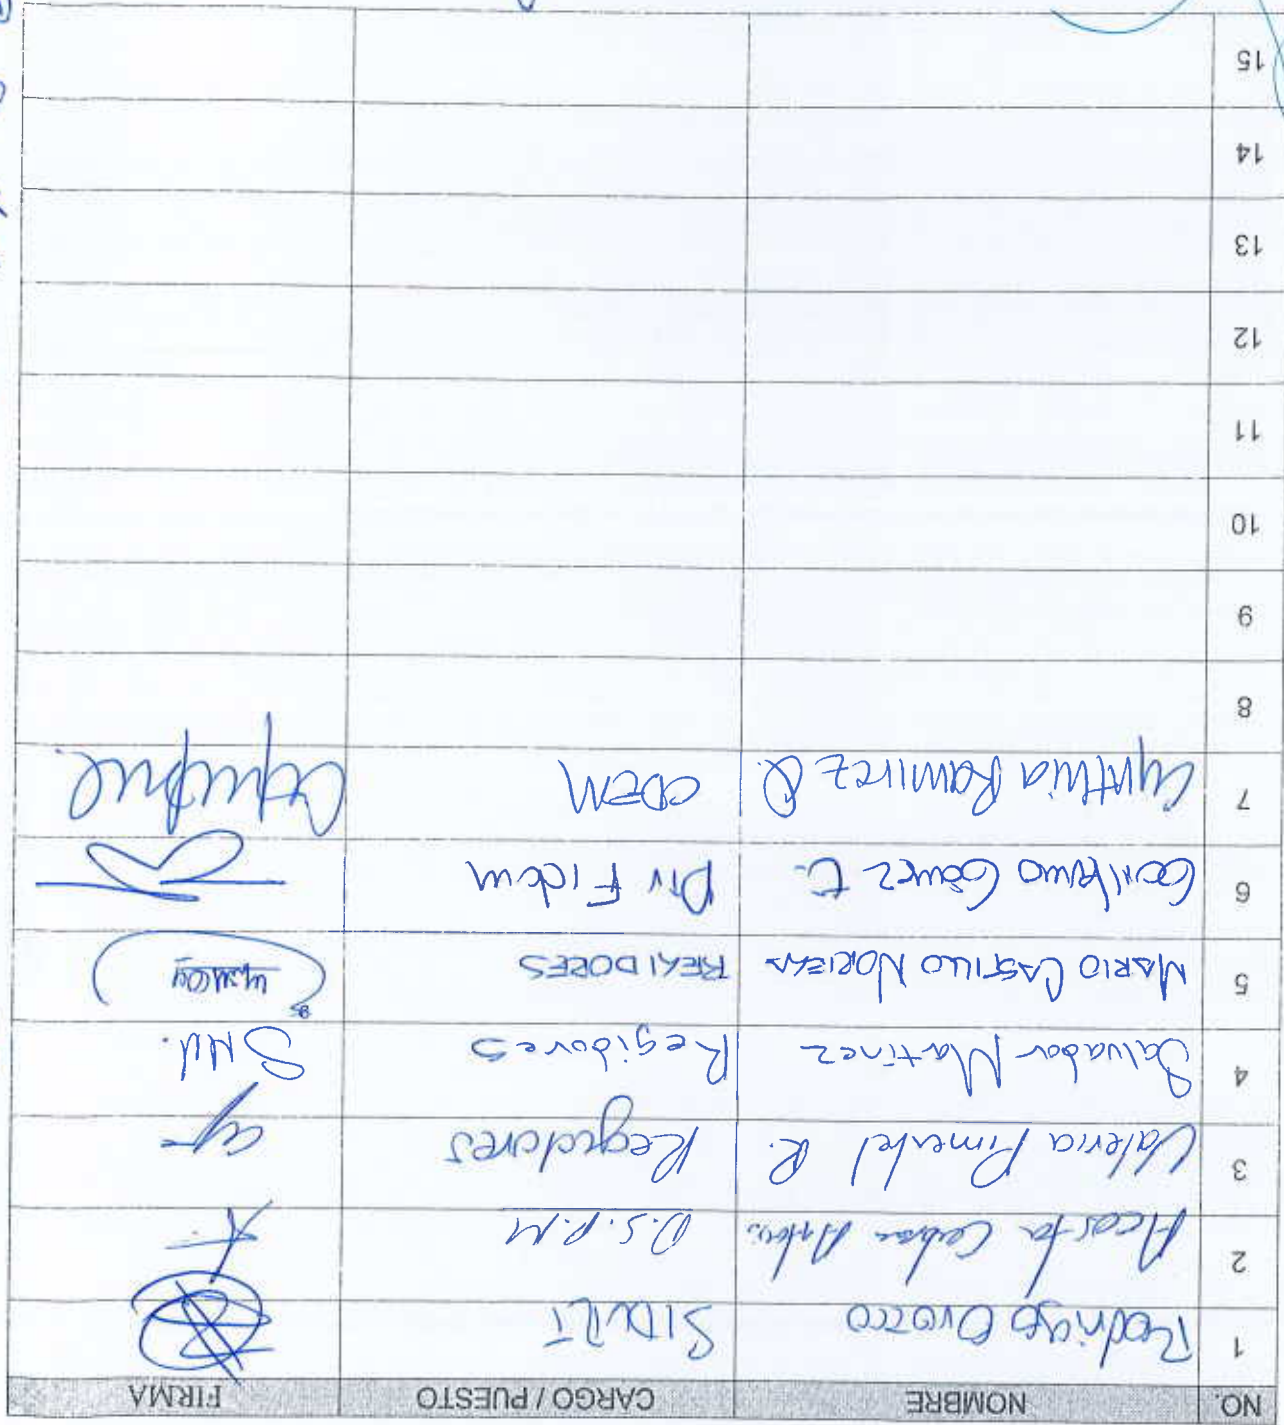 NO. NOMBRE CARGO / PUESTO FIRMA
1 Rodrigo Orozco
2 Acosta D.S.P.M
3 Valeria Pimentel R. Regidores
4 Salvador Martinez Regidores SMM.
5 MARIO CASTILLO NORIEGA REGIDORES
6 Guillermo Gómez C.
7 Cynthia Ramirez Q. CDEM
8
9
10
11
12
13
14
15